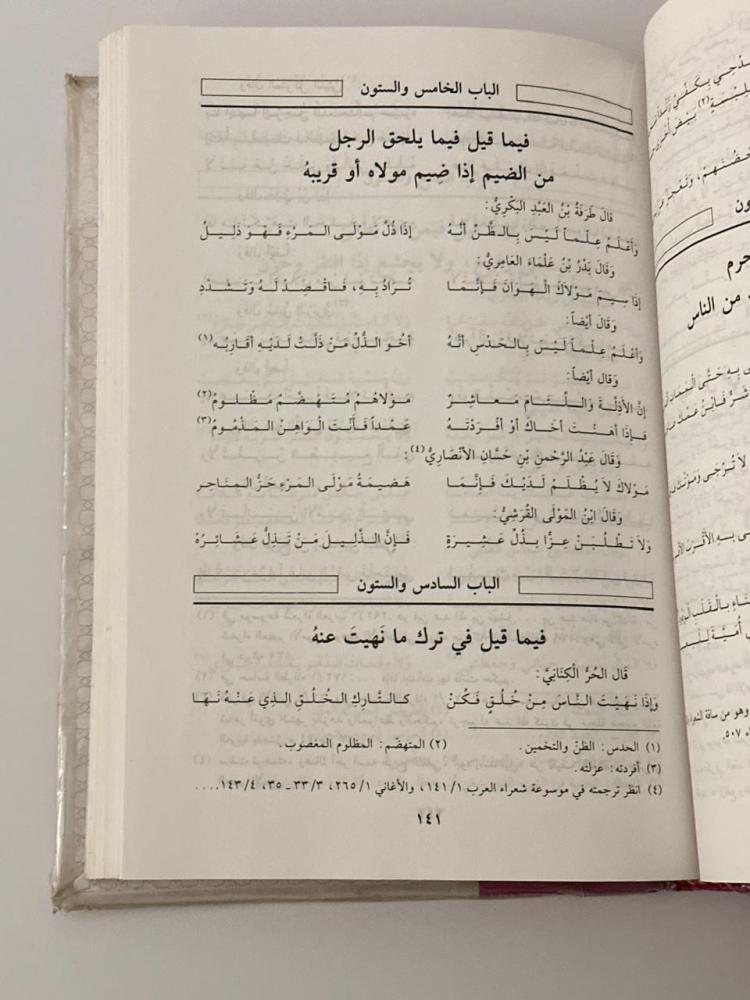 الباب الخامس والستون
فيما قيل فيما يلحق الرجل
من الضيم إذا ضِيم مولاه أو قريبهُ
قالَ طَرَفَةُ بْنُ العَبْدِ البَكْرِيُّ:
وَأَعْلَمُ عِلْماً لَيْسَ بِالظَّنِّ أَنَّهُ إذَا ذَلَّ مَوْلَى المَرْءِ فَهْوَ ذَلِيلُ
وَقَالَ بَدْرُ بْنُ عَلْمَاءَ العَامِرِيُّ:
إذَا سِيمَ مَوْلاَكَ الهَوَانَ فَإِنَّمَا تُرَادُ بِهِ، فَاقْصِدْ لَهُ وَتَشَدَّدِ
وَقَالَ أيْضاً:
وَأَعْلَمُ عِلْماً لَيْسَ بِالحَدْسِ أَنَّهُ أخُو الذُّلِّ مَنْ ذَلَّتْ لَدَيْهِ أَقَارِبُه(١)
وَقال أيْضاً:
إنَّ الأذِلَّةَ وَاللِّئَامَ مَعَاشِرٌ مَوْلاَهُمُ مُتَهَضَّمٌ مَظْلُومُ(٢)
فَإذَا أهَنْتَ أخَاكَ أوْ أفْرَدْتَهُ عَمْداً فَأنْتَ الْوَاهِنُ المَذْمُومُ(٣)
وَقَالَ عَبْدُ الرَّحْمنِ بْنِ حَسَّانِ الأنْصَارِيُّ(٤):
مَوْلاكَ لاَ يُظْلَمْ لَدَيْكَ فَإنَّمَا هَضِيمَةُ مَوْلَى المَرْءِ حَزُّ المَنَاخِرِ
وَقَالَ ابْنُ المَوْلَى القُرَشِيُّ:
وَلاَ تَطْلُبَنْ عِزًّا بِذُلِّ عَشِيرَةٍ فَإنَّ الذَّلِيلَ مَنْ تَذِلُّ عَشَائِرُهُ
الباب السادس والستون
فيما قيل في ترك ما نَهيتَ عنهُ
قَال الحُرُّ الْكِنَانِيُّ:
وَإذَا نَهَيْتَ النَّاسَ مِنْ خُلُقٍ فَكُنْ كالتَّارِكِ الخُلُقِ الذِي عَنْهُ نَهَا
(١) الحدس: الظنّ والتخمين. (٢) المتهضّم: المظلوم المغصوب.
(٣) أفردته: عزلته.
(٤) انظر ترجمته في موسوعة شعراء العرب ١/١٤١، والأغاني ١/٢٦٥، ٣/٣٣ـ٣٥، ٤/١٤٣....
١٤١
حرم
من الناس